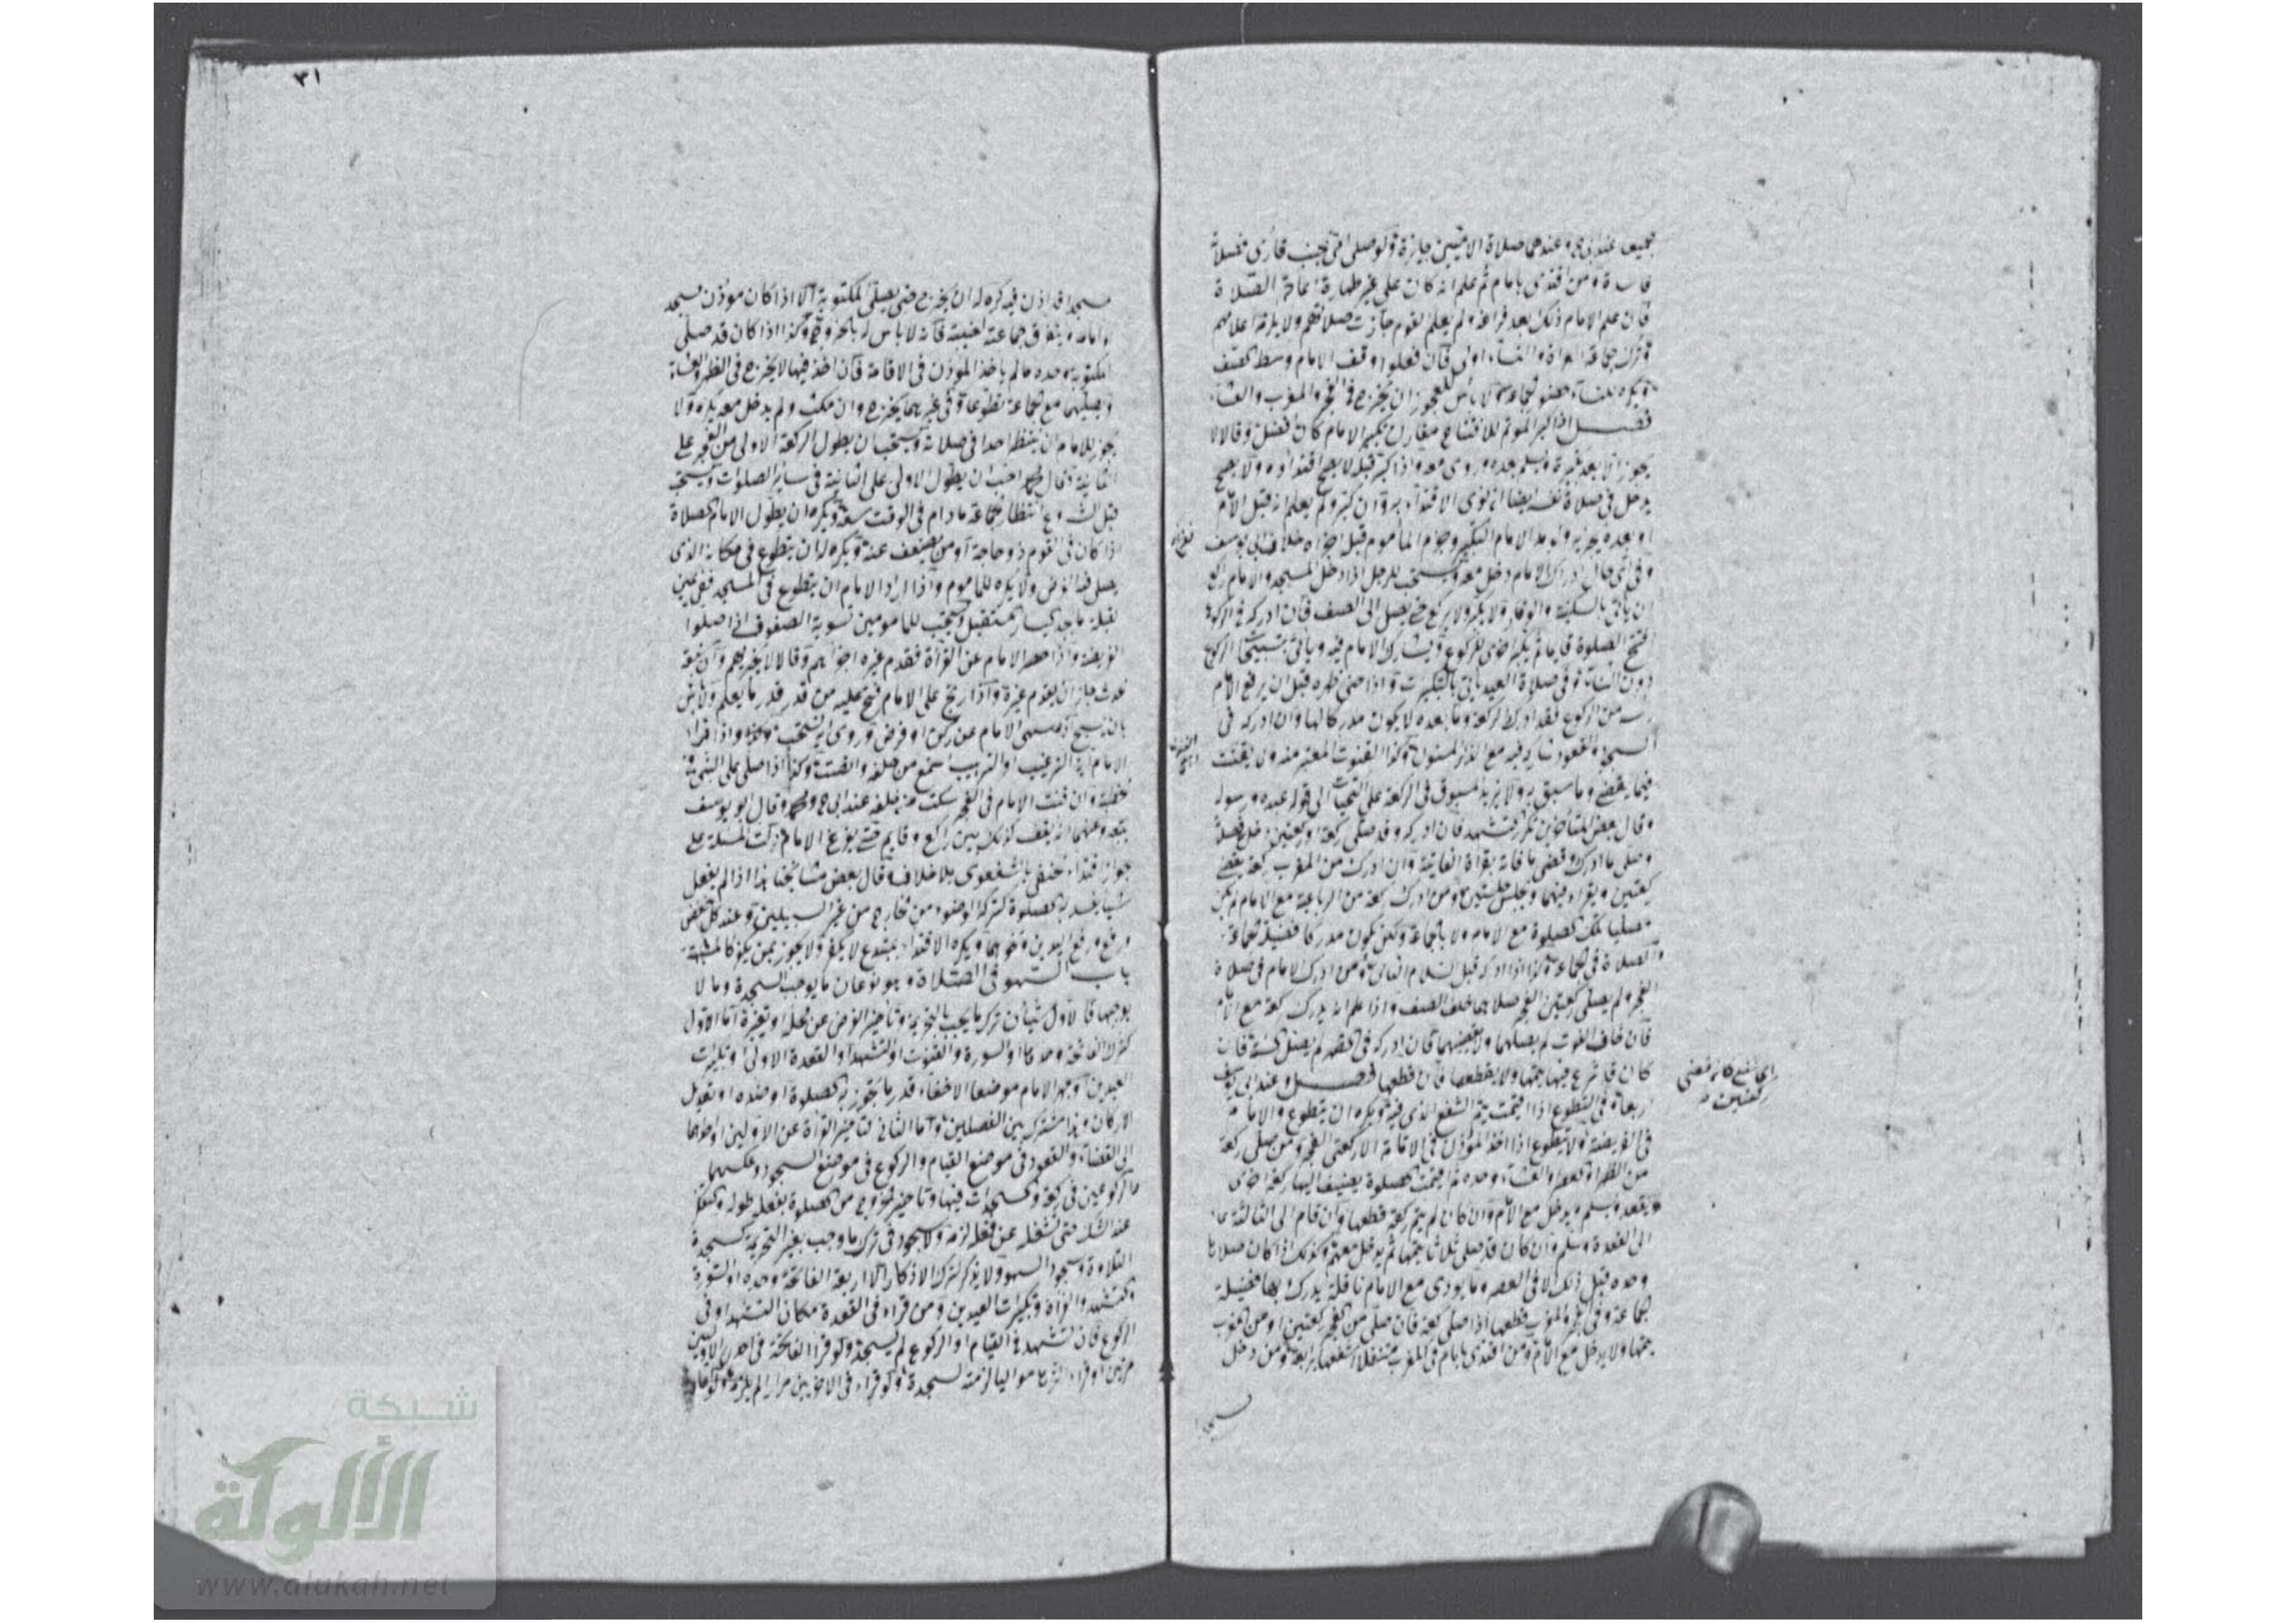 جميعا عند ابي ح وعندهما صلاة الاميين جايزة ولو صلى امي بجنب قارى فصلاة
فاسدة ومن اقتدى بامام ثم علم انه كان على غير طهارة اعاد الصلاة
فان علم الامام ذلك بعد فراغه ولم يعلم القوم جازت صلاتهم ولا يلزمه اعلامهم
وترك جماعة المراة والنساء اولى فان فعلوا وقف الامام وسط الصف
ويكره للنساء حضور الجماعة ولا بأس للعجوز ان يخرج في الفجر والمغرب والعشاء
فصل اذا كبر المؤتم للافتتاح مقارن تكبير الامام كان افضل وقالا لا
يجوز الا بعد تكبيره ويسلم بعده وروى معه واذا كبر قبله لا يصح اقتداوه ولا يصح
يدخل في صلاة نفسه ايضا ان نوى الاقتداء به وان كبر ولم يعلم انه قبل الامام
او بعده يجزيه ولو مد الامام التكبير وجزم المأموم قبله اجزاه خلاف ابي يوسف
وفي اي حال ادرك الامام دخل معه ويستحب للرجل اذا دخل المسجد والامام راكع
ان يأتي بالسكينة والوقار ولا يكبر ولا يركع حتى يصل الى الصف فان ادركه في الركوع
افتتح الصلوة قايما ثم يكبر اخرى للركوع ويشارك الامام فيه ويأتي بتسبيحات الركوع
دون الثناء وفي صلاة العيد يأتي بالتكبيرات واذا حنى ظهره قبل ان يرفع الامام
راسه من الركوع فقد ادرك الركعة وما بعده لا يكون مدركا لها وان ادركه في
السجود والقعود شاركه فيه مع الذكر المسنون وكذا القنوت المعتبر منه ولا يقنت
فيما يقضي وما سبق به ولا يزيد المسبوق في الركعة على التحيات الى قوله عبده ورسوله
وقال بعض المتأخرين يكرر التشهد فان ادركه وقد صلى ركعة او ركعتين دخل معه
وصلى ما ادرك وقضى ما فاته بقراة الفاتحة وان ادرك من المغرب ركعة يقضي
ركعتين ويقراء فيهما ويجلس جلستين ومن ادرك ركعة من الرباعية مع الامام لم يكن
مصليا تلك الصلوة مع الامام ولا بالجماعة ولكن يكون مدركا فضيلة الجماعة
والصلاة في الجماعة وكذا اذا ادركه قبل السلام الثاني ومن ادرك الامام في صلاة
الفجر ولم يصلي ركعتين الفجر صلاهما خلف الصف واذا علم انه يدرك ركعة مع الامام
فان خاف الفوت لم يصلهما ولا يقضيهما فان ادركه في الظهر لم يصل السنة فان
كان قد شرع فيها يتمها ولا يقطعها فان قطعها فصل وعند ابي يوسف
اربعا وفي التطوع اذا اقيمت يتم الشفع الذي فيه ويكره ان يتطوع والامام
في الفريضة ولا يتطوع اذا اخذ المؤذن في الاقامة الا ركعتي الفجر ومن صلى ركعة
من الظهر او العصر او العشاء وحده ثم اقيمت الصلوة يضيف اليها ركعة اخرى
ويقعد ويسلم ويدخل مع الامام وان كان لم يتم ركعة قطعها وان قام الى الثالثة عاد
الى القعدة وسلم وان كان قد صلى ثلاثا يتمها ثم يدخل معهم وكذلك اذا كان صلاها
وحده قبل ذلك الا في العصر وما يودى مع الامام نافلة يدرك بها فضيلة
الجماعة وفي الفجر والمغرب قطعها اذا صلى ركعة فان صلى من الفجر ركعتين او من المغرب
يتمها ولا يدخل مع الامام ومن اقتدى بامام في المغرب متنفلا شفعها برابعة ومن دخل
اي شفع كانه قضى
ركعتين
مسجدا
٣١
مسجدا قد اذن فيه كره له ان يخرج حتى يصلي المكتوبة الا اذا كان مؤذن مسجد
وامامه ويتفرق جماعته لغيبته فانه لا باس له بالخروج وكذا اذا كان قد صلى
المكتوبة وحده ما لم ياخذ المؤذن في الاقامة فان اخذ فيها لا يخرج في الظهر والعشاء
ويصليهما مع الجماعة تطوعا وفي غيرهما يخرج وان مكث ولم يدخل معه يكره ولا
يجوز للامام ان ينتظر احدا في صلاته ويستحب ان يطول الركعة الاولى من الفجر على
الثانية وقال محمد احب ان يطول الاولى على الثانية في ساير الصلوات ويستحب
قبل الشروع انتظار الجماعة ما دام في الوقت سعة ويكره ان يطول الامام الصلاة
اذا كان في القوم ذو حاجة او من يضعف عنه ويكره له ان يتطوع في مكانه الذي
يصلي فيه الفرض ولا يكره للماموم واذا اراد الامام ان يتطوع في المسجد ففي يمين
القبلة ما يحد يسار المستقبل ويستحب للمامومين تسوية الصفوف اذا صلوا
الفريضة واذا حصر الامام عن القراة فقدم غيره اجزاهم وقالا لا يجزيهم وان سبقه
الحدث جاز ان يقدم غيره واذا ارتج على الامام فتح عليه من قدر قدر ما يعلم ولا باس
بان يسبح اذا سهى الامام عن ركن او فرض وروى انه يستحب وكذا واذا قراء
الامام اية الترغيب او الترهيب استمع من خلفه وانصت وكذا اذا صلى على النبي في
الخطبة وان قنت الامام في الفجر سكت من خلفه عند ابي ح ومحمد وقال ابو يوسف
يتبعه وعنهما انه يقف كذلك بين راكع وقايم حتى يفرغ الامام دلت المسئلة على
جواز اقتداء الحنفي بالشفعوى بلا خلاف وقال بعض مشايخنا هذا اذا لم يفعل
شيا يفسد به الصلوة كتركه الوضوء من الخارج من غير السبيلين وعند كل خفض
ورفع رفع اليدين ونحوهما ويكره الاقتداء بمبتدع لا يكفر ولا يجوز بمن يكفر كالمشبهة
باب السهو في الصلاة وهو نوعان ما يوجب السجدة وما لا
يوجبها فالاول شيان ترك ما يجب بالتحريمة وتأخير الفرض عن محله او تغيره اما الاول
كترك الفاتحة وحدها والسورة والقنوت او التشهد او القعدة الاولى او تكبيرات
العيدين او جهر الامام موضعا الاخفاء قدر ما يجوز به الصلوة او ضده او تعديل
الاركان وهذا مشترك بين الفصلين واما الثاني كتاخير القراة عن الاوليين او احدهما
الى القضاء والقعود في موضع القيام والركوع في موضع السجود وعكسهما
والركوعين في ركعة والسجدات فيها وتاخير الخروج من الصلوة بفعله طوله والتفكر
عند الشك حتى شغله عن فعل لزمه ولا سجود في ترك ما وجب بغير التحريمة كسجدة
التلاوة وسجود السهو ولا يذكر لترك الاذكار الا اربعة الفاتحة وحده او السورة
والتشهد والقراة وتكبيرات العيدين ومن قراء في القعدة مكان التشهد او في
الركوع فان تشهد في القيام او الركوع لم يسجد ولو قرا الفاتحة في احدى الاوليين
مرتين او قراء القران مواليا لزمته السجدة ولو قراء في الاخريين مرارا لم يلزمه
شبكة
الألوكة
www.alukah.net